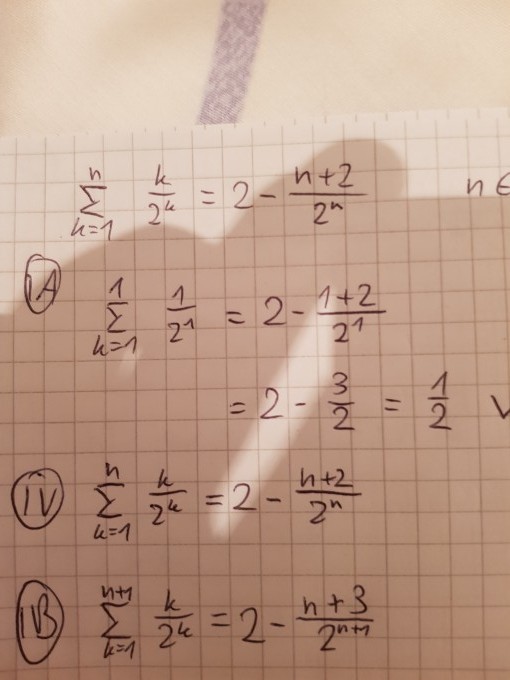 n∑k=1 k/2^k = 2 - (n+2)/2^n n ∈
IA 1∑k=1 1/2^1 = 2 - (1+2)/2^1
= 2 - 3/2 = 1/2 ✓
IV n∑k=1 k/2^k = 2 - (n+2)/2^n
IB n+1∑k=1 k/2^k = 2 - (n+3)/2^(n+1)